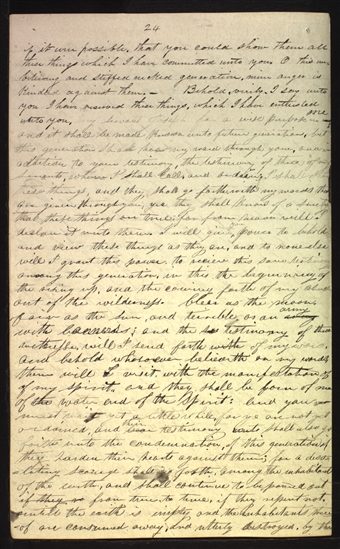 24
if it were possible, that you could show them all
these things which I have committed unto you O this un
believing and stiffnecked generation, mine anger is
kindled against them,— Behold, verily I say unto
you I have reserved these things, which I have entrusted
unto you, my servant for a wise purpose in me
and it shall be made known unto future generations, but
this generation shall have my word through you, and in
addition to your testimony, the testimony of three of my
servants, whom I shall call and ordain, I shall
these things, and they shall go forth with my words that
are given through you, yea they shall know of a surety
that these things are true: for from heaven will I
declare it unto them: I will give power to behold
and view these things as they are; and to none else
will I grant this power, to receive this same testimony
among this generation, in this the beginning of
the rising up, and the coming forth of my church
out of the wilderness: Clear as the moon,
fair as the sun, and terrible as an army
with banners; and the testimony of three
witnesses, will I send forth with of my word,
and behold whosoever believeth on my words
them will I visit, with the manifestation of
of my spirit, and they shall be born of me
of the water and of the Spirit: and you
must wait yet a little while, for ye are not yet
ordained, and their testimony shall also go
forth unto the condemnation, of this generation if
they harden their hearts against them; for a deso
lating scourge shall go forth, among the inhabitants
of the earth, and shall continue to be poured out
if they from time to time, if they repent not,
until the earth is empty, and the inhabitants there
of are consumed away, and utterly destroyed, by the